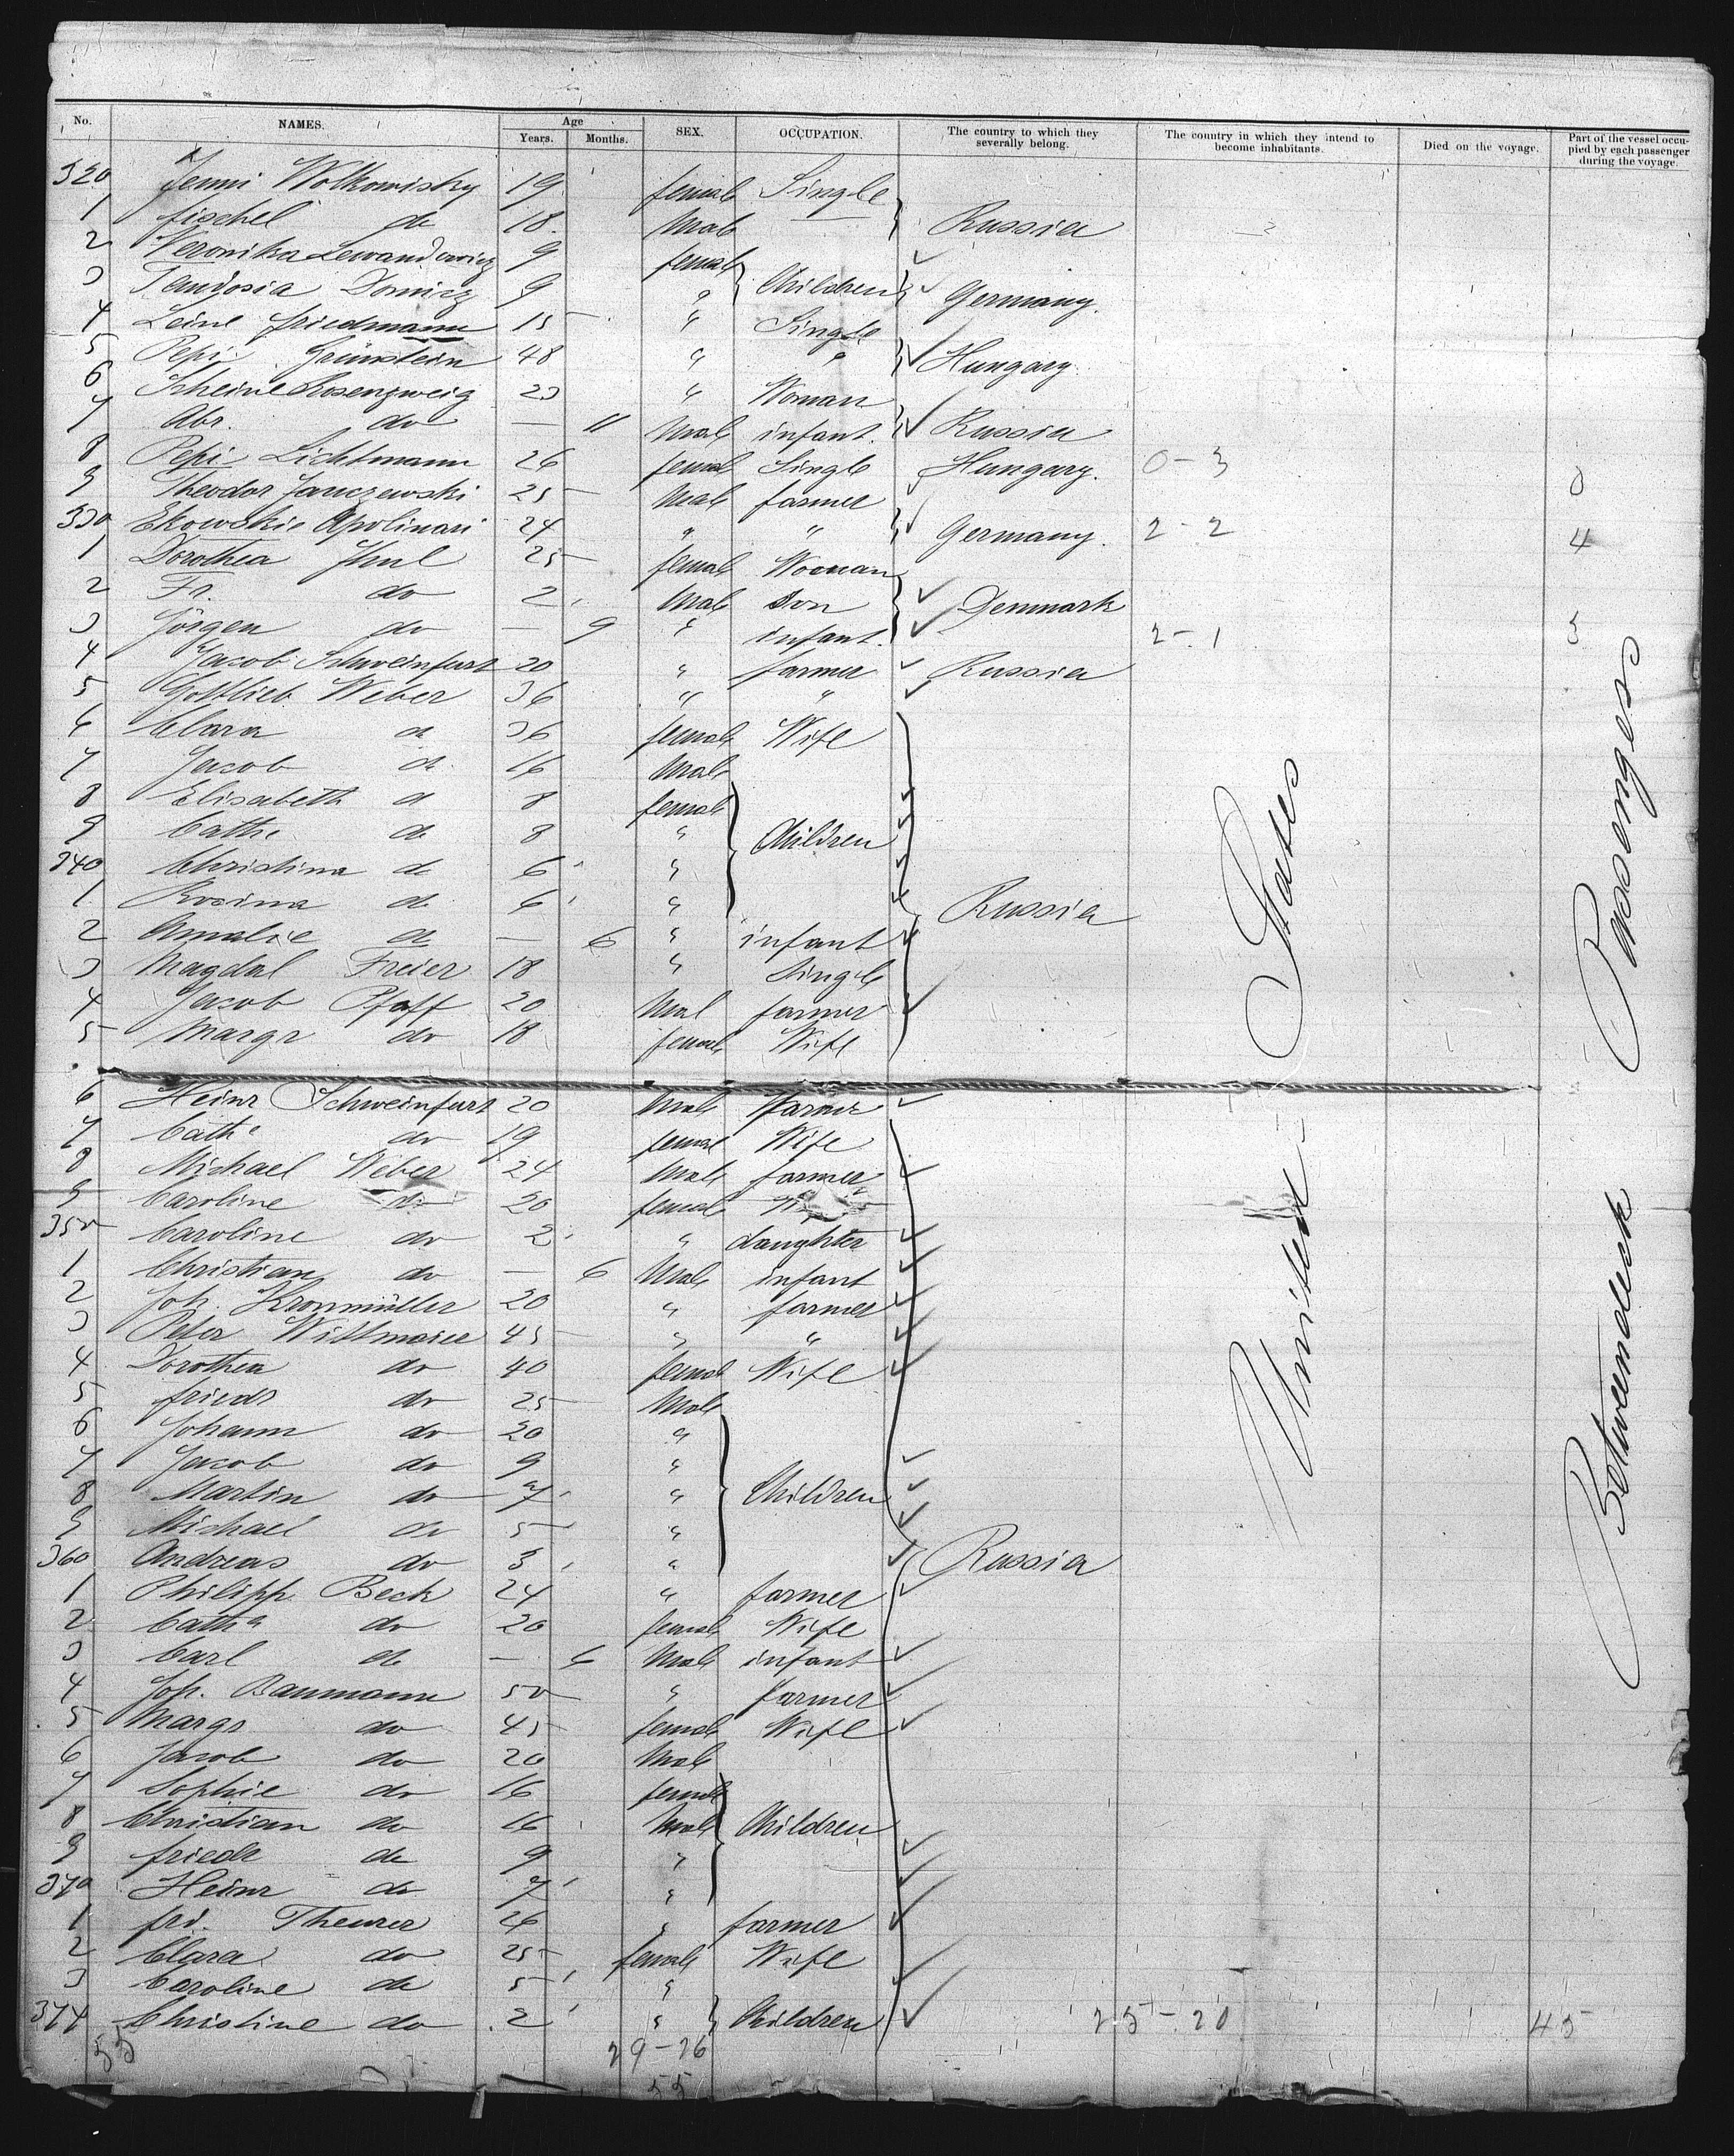 No. NAMES. Age Years. Months. SEX. OCCUPATION. The country to which they severally belong. The country in which they intend to become inhabitants. Died on the voyage. Part of the vessel occupied by each passenger during the voyage.
320 Jenni Wolkowisky 19 female Single
1 Fischel do 18 Male — Russia
2 Veronika Lewandowicz 9 female
3 Dornicz 9 " Children Germany.
4 Leine Friedmann 15 " Single
5 Pepi Grünstein 48 " " Hungary
6 Scheine Rosenzweig 23 " Woman
7 Abr. do — 11 Male infant. Russia
8 Pepi Lichtmann 26 female Single Hungary. 0-3
9 Theodor Janczewski 25 Male farmer 3
330 Ekowskie Apolinari 24 " " Germany. 2-2 4
1 Dorothea Juul 25 female Wooman
2 Fr. do 2 Male Son Denmark
3 Jörgen do — 9 " infant. 2-1 3
4 Jacob Schweinfurt 20 " farmer Russia
5 Gottlieb Weber 36 " "
6 Clara do 36 female Wife
7 Jacob do 16 Male
8 Elisabeth do 8 female
9 Cathe do 8 " Children
340 Christina do 6 "
1 Rosina do 6 " Russia
2 Amalie do — 6 " infant
3 Magdal Freier 18 " Single
4 Jacob Pfaff 20 Mal farmer
5 Margr do 18 female Wife
6 Heinr Schweinfurt 20 Male farmer
7 Cathe do 19 female Wife
8 Michael Weber 24 Male farmer
9 Caroline do 20 female
350 Caroline do 2 " daughter
1 Christian do — 6 Male infant
2 Joh. Kronmüller 20 " farmer
3 Peter Wittmaier 45 " "
4 Dorothea do 40 female Wife
5 Friedr do 25 Male
6 Johann do 20 "
7 Jacob do 9 "
8 Martin do 7 " Children
9 Michael do 5 "
360 Andreas do 3 " Russia
1 Philipp Beck 24 " farmer
2 Catha do 20 female Wife
3 Carl do — 6 Male infant
4 Joh. Baumann 50 " farmer
5 Margr do 45 female Wife
6 Jacob do 20 Male
7 Sophie do 16 female
8 Christian do 16 Male Children
9 Friedr do 9 "
370 Heinr do 7 "
1 Frd. Theurer 26 " farmer
2 Clara do 25 female Wife
3 Caroline do 5 "
374 Christine do 2 " Children 25-20 45
55 29-26
55
United States
Betweendeck Passengers